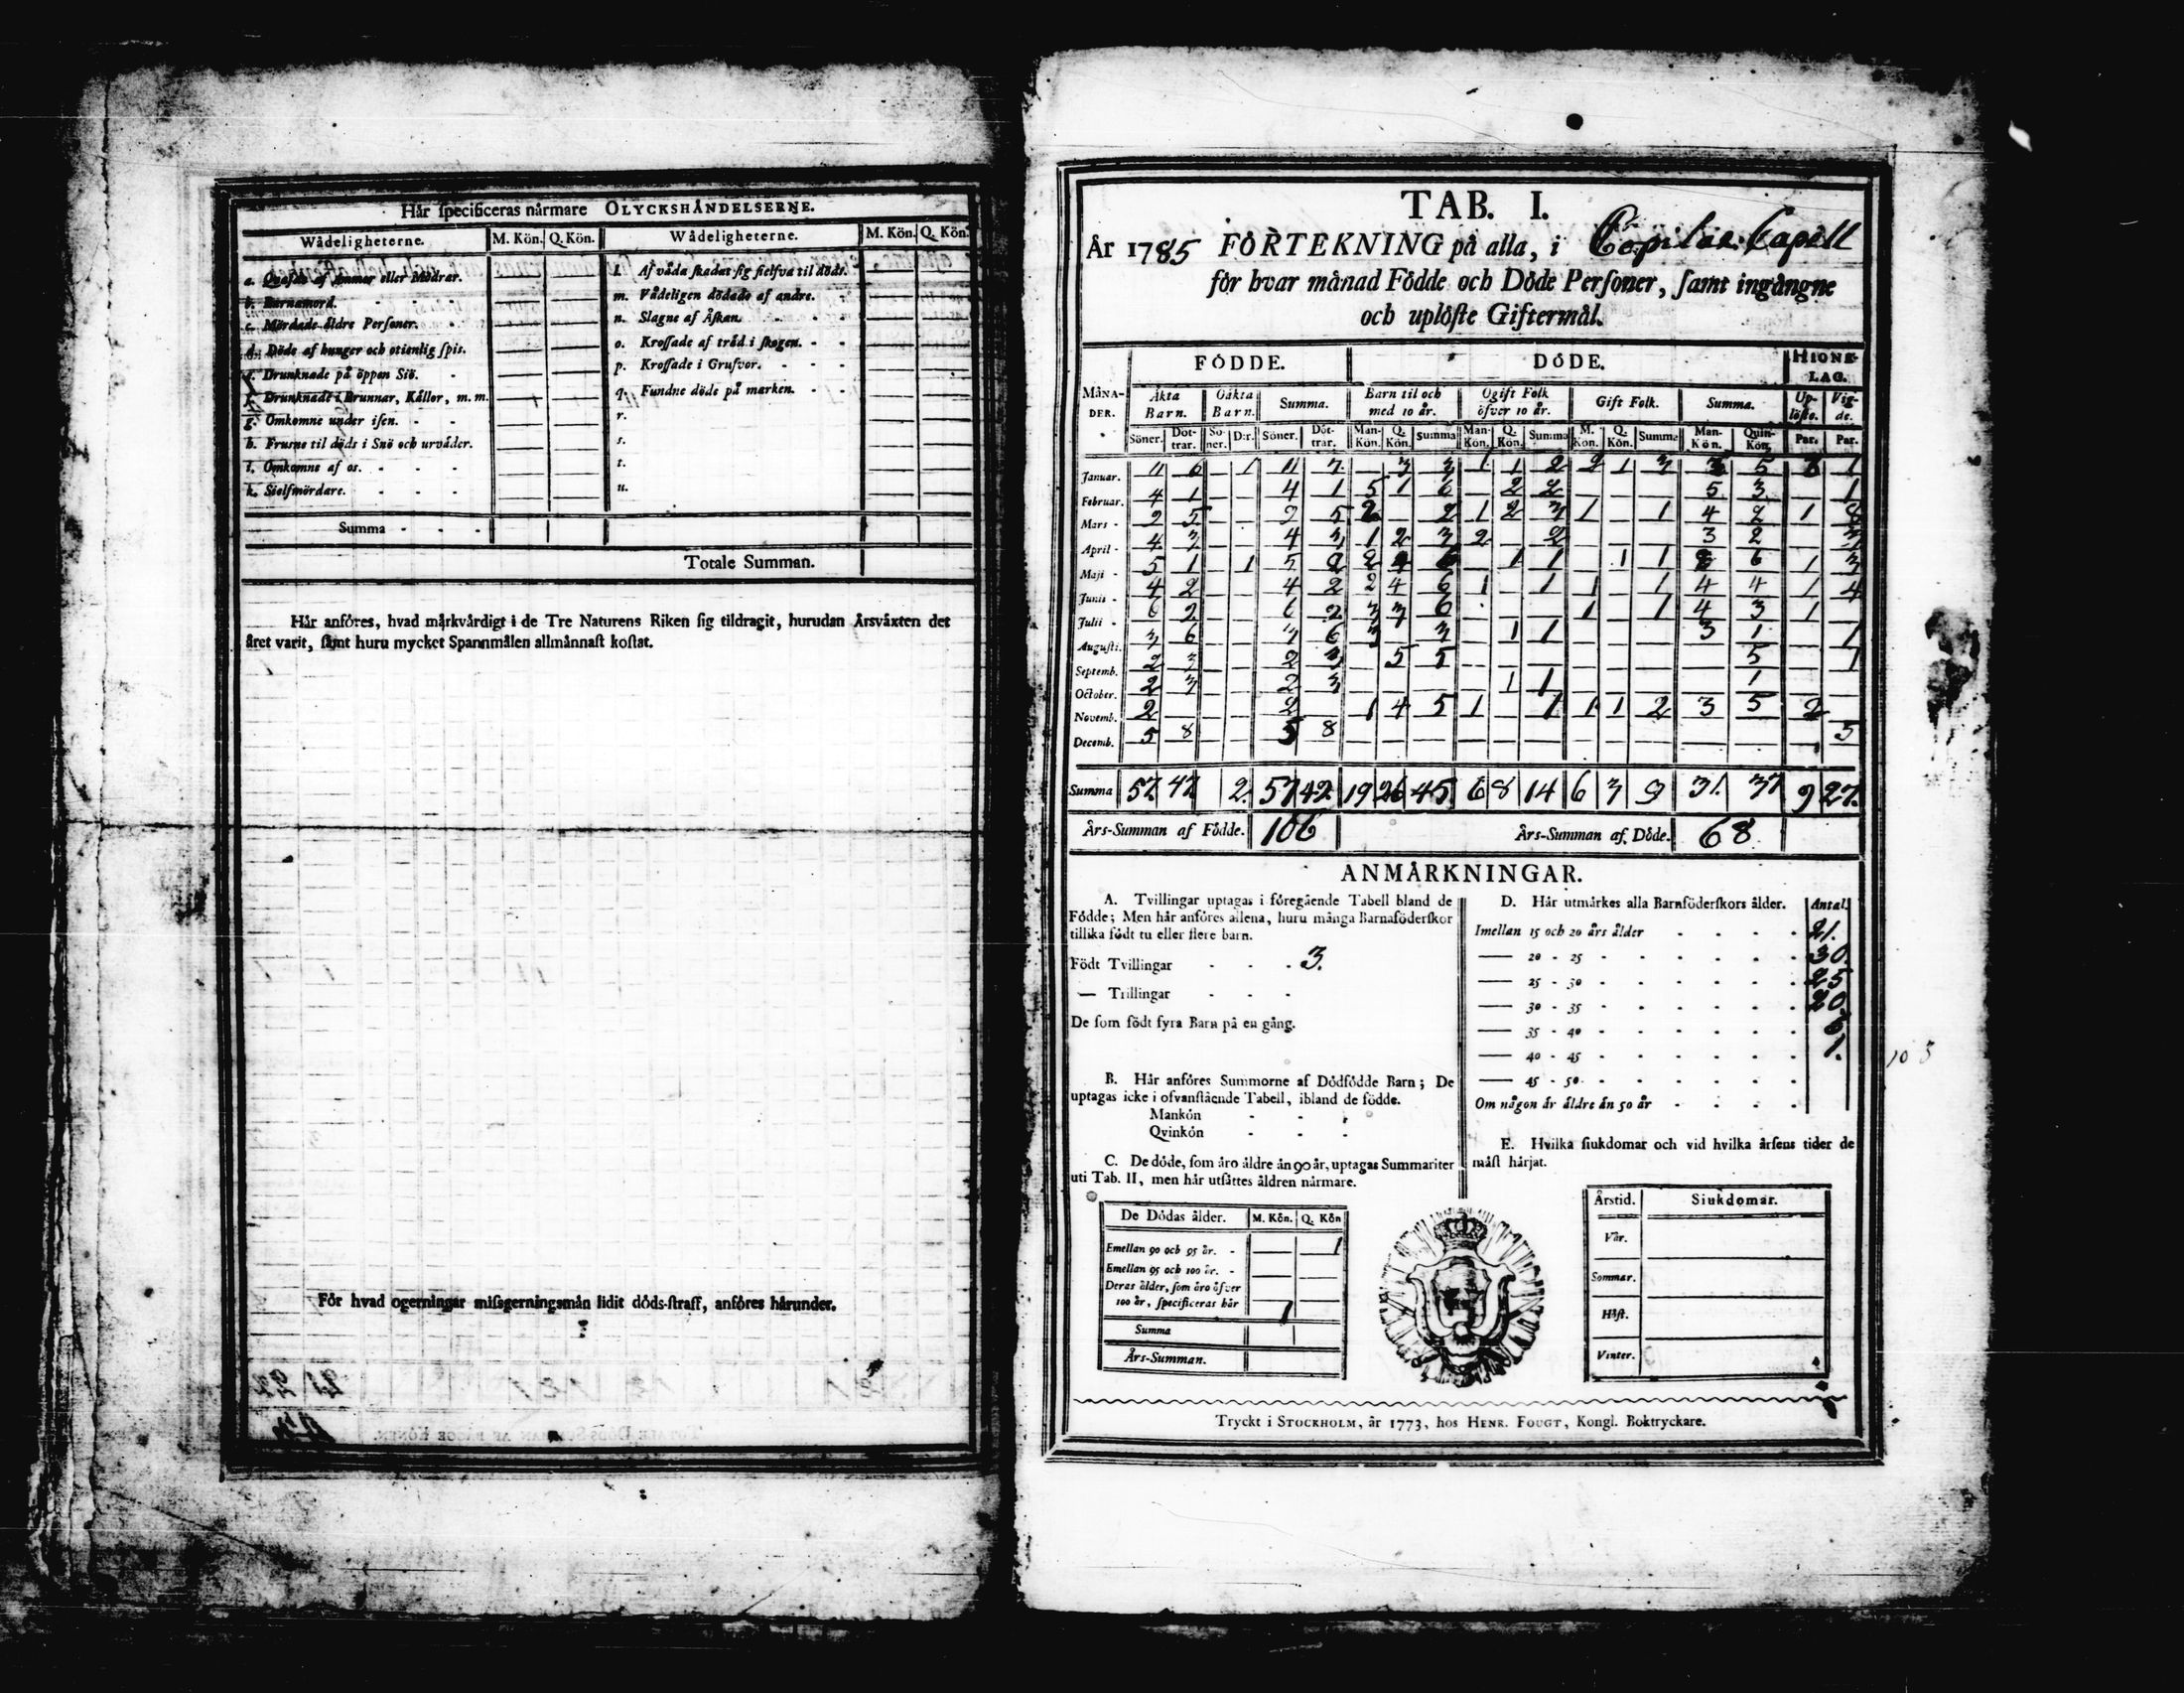 Hår specificeras nårmare OLYCKSHÅNDELSERNE.
Wådeligheterne. M. Kön. Q. Kön. Wådeligheterne. M. Kön. Q. Kön.
a. Qvafde af Ammor eller Mödrar. l. Af våda skadat sig sielfva til döds.
b. Barnamord. m. Vådeligen dödade af andre.
c. Mördade äldre Personer. n. Slagne af Åskan.
d. Döde af hunger och otienlig spis. o. Krossade af tråd i skogen.
e. Drunknade på öppen Siö. p. Krossade i Grufvor.
f. Drunknade i Brunnar, Kållor, m. m. q. Fundne döde på marken.
g. Omkomne under isen. r.
h. Frusne til döds i Snö och urvåder. s.
i. Omkomne af os. t.
k. Sielfmördare. u.
Summa
Totale Summan.
Hår anföres, hvad mårkvårdigt i de Tre Naturens Riken sig tildragit, hurudan Årsvåxten det
året varit, samt huru mycket Spannmålen allmånnast kostat.
För hvad ogerningar missgerningsmån lidit döds-straff, anföres hårunder.
TAB. I.
År 1785 FÖRTEKNING på alla, i Capell
för hvar månad Födde och Döde Personer, samt ingångne
och uplöste Giftermål.
MÅNADER. FÖDDE. DÖDE. HIONELAG.
Åkta Barn. Oåkta Barn. Summa. Barn til och med 10 år. Ogift Folk öfver 10 år. Gift Folk. Summa. Uplöste. Vigde.
Söner. Döttrar. Söner. D:r. Söner. Döttrar. Man-Kön. Q. Kön. Summa Man-Kön. Q. Kön. Summa M. Kön. Q. Kön. Summa Man-Kön. Quin-Kön. Par. Par.
Januar. 11 6 — 1 11 7 — 3 3 1 1 2 2 1 3 3 5 3 1
Februar. 4 1 — — 4 1 5 1 6 — 2 2 — — — 5 3 — 1
Mars 2 5 — — 2 5 2 — 2 1 2 3 1 — 1 4 2 1 8
April 4 3 — — 4 3 1 2 3 2 — 2 — — — 3 2
Maji 5 1 — 1 5 2 2 4 6 — 1 1 — 1 1 6 1 3
Junii 4 2 — — 4 2 2 4 6 1 — 1 1 — 1 4 4 1 4
Julii 6 2 — — 6 2 3 3 6 — — — 1 — 1 4 3 1 —
Augusti. 3 6 — — 3 6 3 — 3 — 1 1 — — — 3 1 — 1
Septemb. 2 3 — — 2 3 — 5 5 — — — — — — — 5 — 1
October. 2 3 — — 2 3 — — — — 1 1 — — — — 1 — —
Novemb. 2 — — — 2 — 1 4 5 1 — 1 1 1 2 3 5 2 —
Decemb. 5 8 — — 5 8 — — — — — — — — — — — — 5
Summa 57. 47. 2. 57 42. 19 26 45 6 8 14 6 3 9 31. 37 9 27.
Års-Summan af Födde. 106 Års-Summan af Döde. 68.
ANMÅRKNINGAR.
A. Tvillingar uptagas i föregående Tabell bland de
Födde; Men hår anföres allena, huru många Barnaföderskor
tillika födt tu eller flere barn.
Födt Tvillingar 3.
— Trillingar
De som födt fyra Barn på en gång.
B. Hår anföres Summorne af Dödfödde Barn; De
uptagas icke i ofvanstående Tabell, ibland de födde.
Mankön
Qvinkön
C. De döde, som åro åldre ån 90 år, uptagas Summariter
uti Tab. II, men hår utsåttes åldren nårmare.
De Dödas ålder. M. Kön. Q. Kön
Emellan 90 och 95 år. — 1
Emellan 95 och 100 år. — —
Deras ålder, som åro öfver
100 år, specificeras hår
Summa
Års-Summan.
D. Hår utmårkes alla Barnföderskors ålder. Antal.
Imellan 15 och 20 års ålder 21.
— 20 - 25 30.
— 25 - 30 25.
— 30 - 35 20.
— 35 - 40 6.
— 40 - 45 1.
— 45 - 50
Om någon år åldre ån 50 år
103
E. Hvilka siukdomar och vid hvilka årsens tider de
måst hårjat.
Årstid. Siukdomar.
Vår.
Sommar.
Höst.
Vinter.
Tryckt i STOCKHOLM, år 1773, hos HENR. FOUGT, Kongl. Boktryckare.